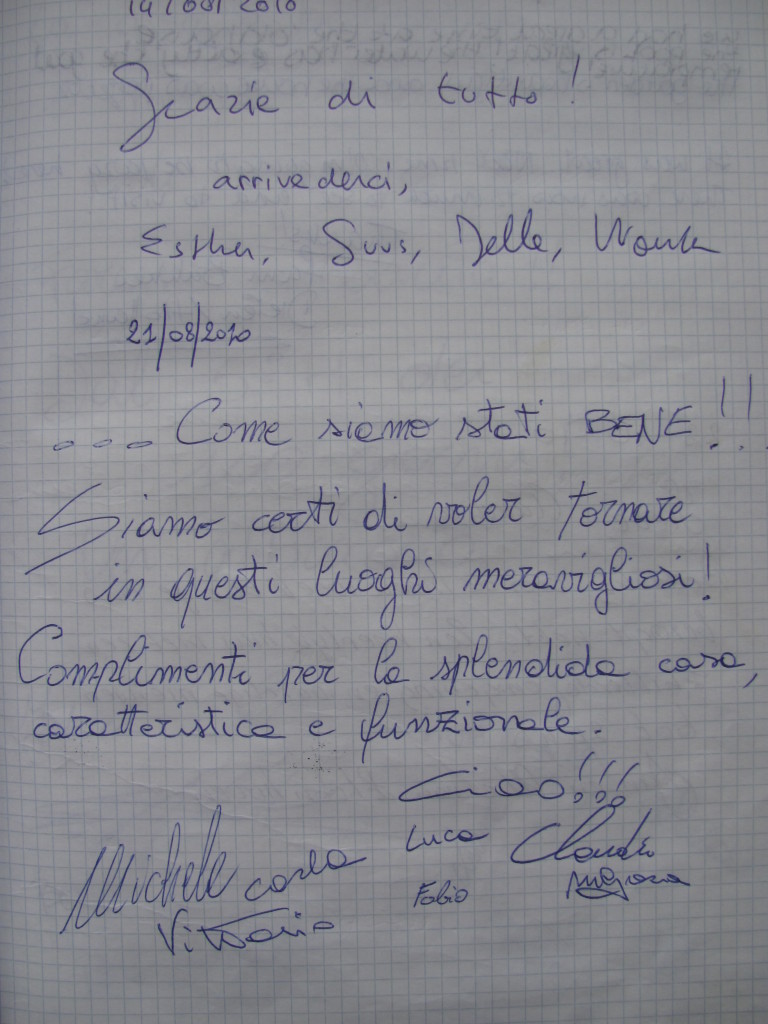 14/08/2010
Grazie di tutto!
arrivederci,
Esther, Suus, Jelle, Wouter
21/08/2010
... Come siamo stati BENE!!!
Siamo certi di voler tornare
in questi luoghi meravigliosi!
Complimenti per la splendida casa,
caratteristica e funzionale.
Ciao!!!
Michele Carla Luca Claudio
Vittorio Fabio